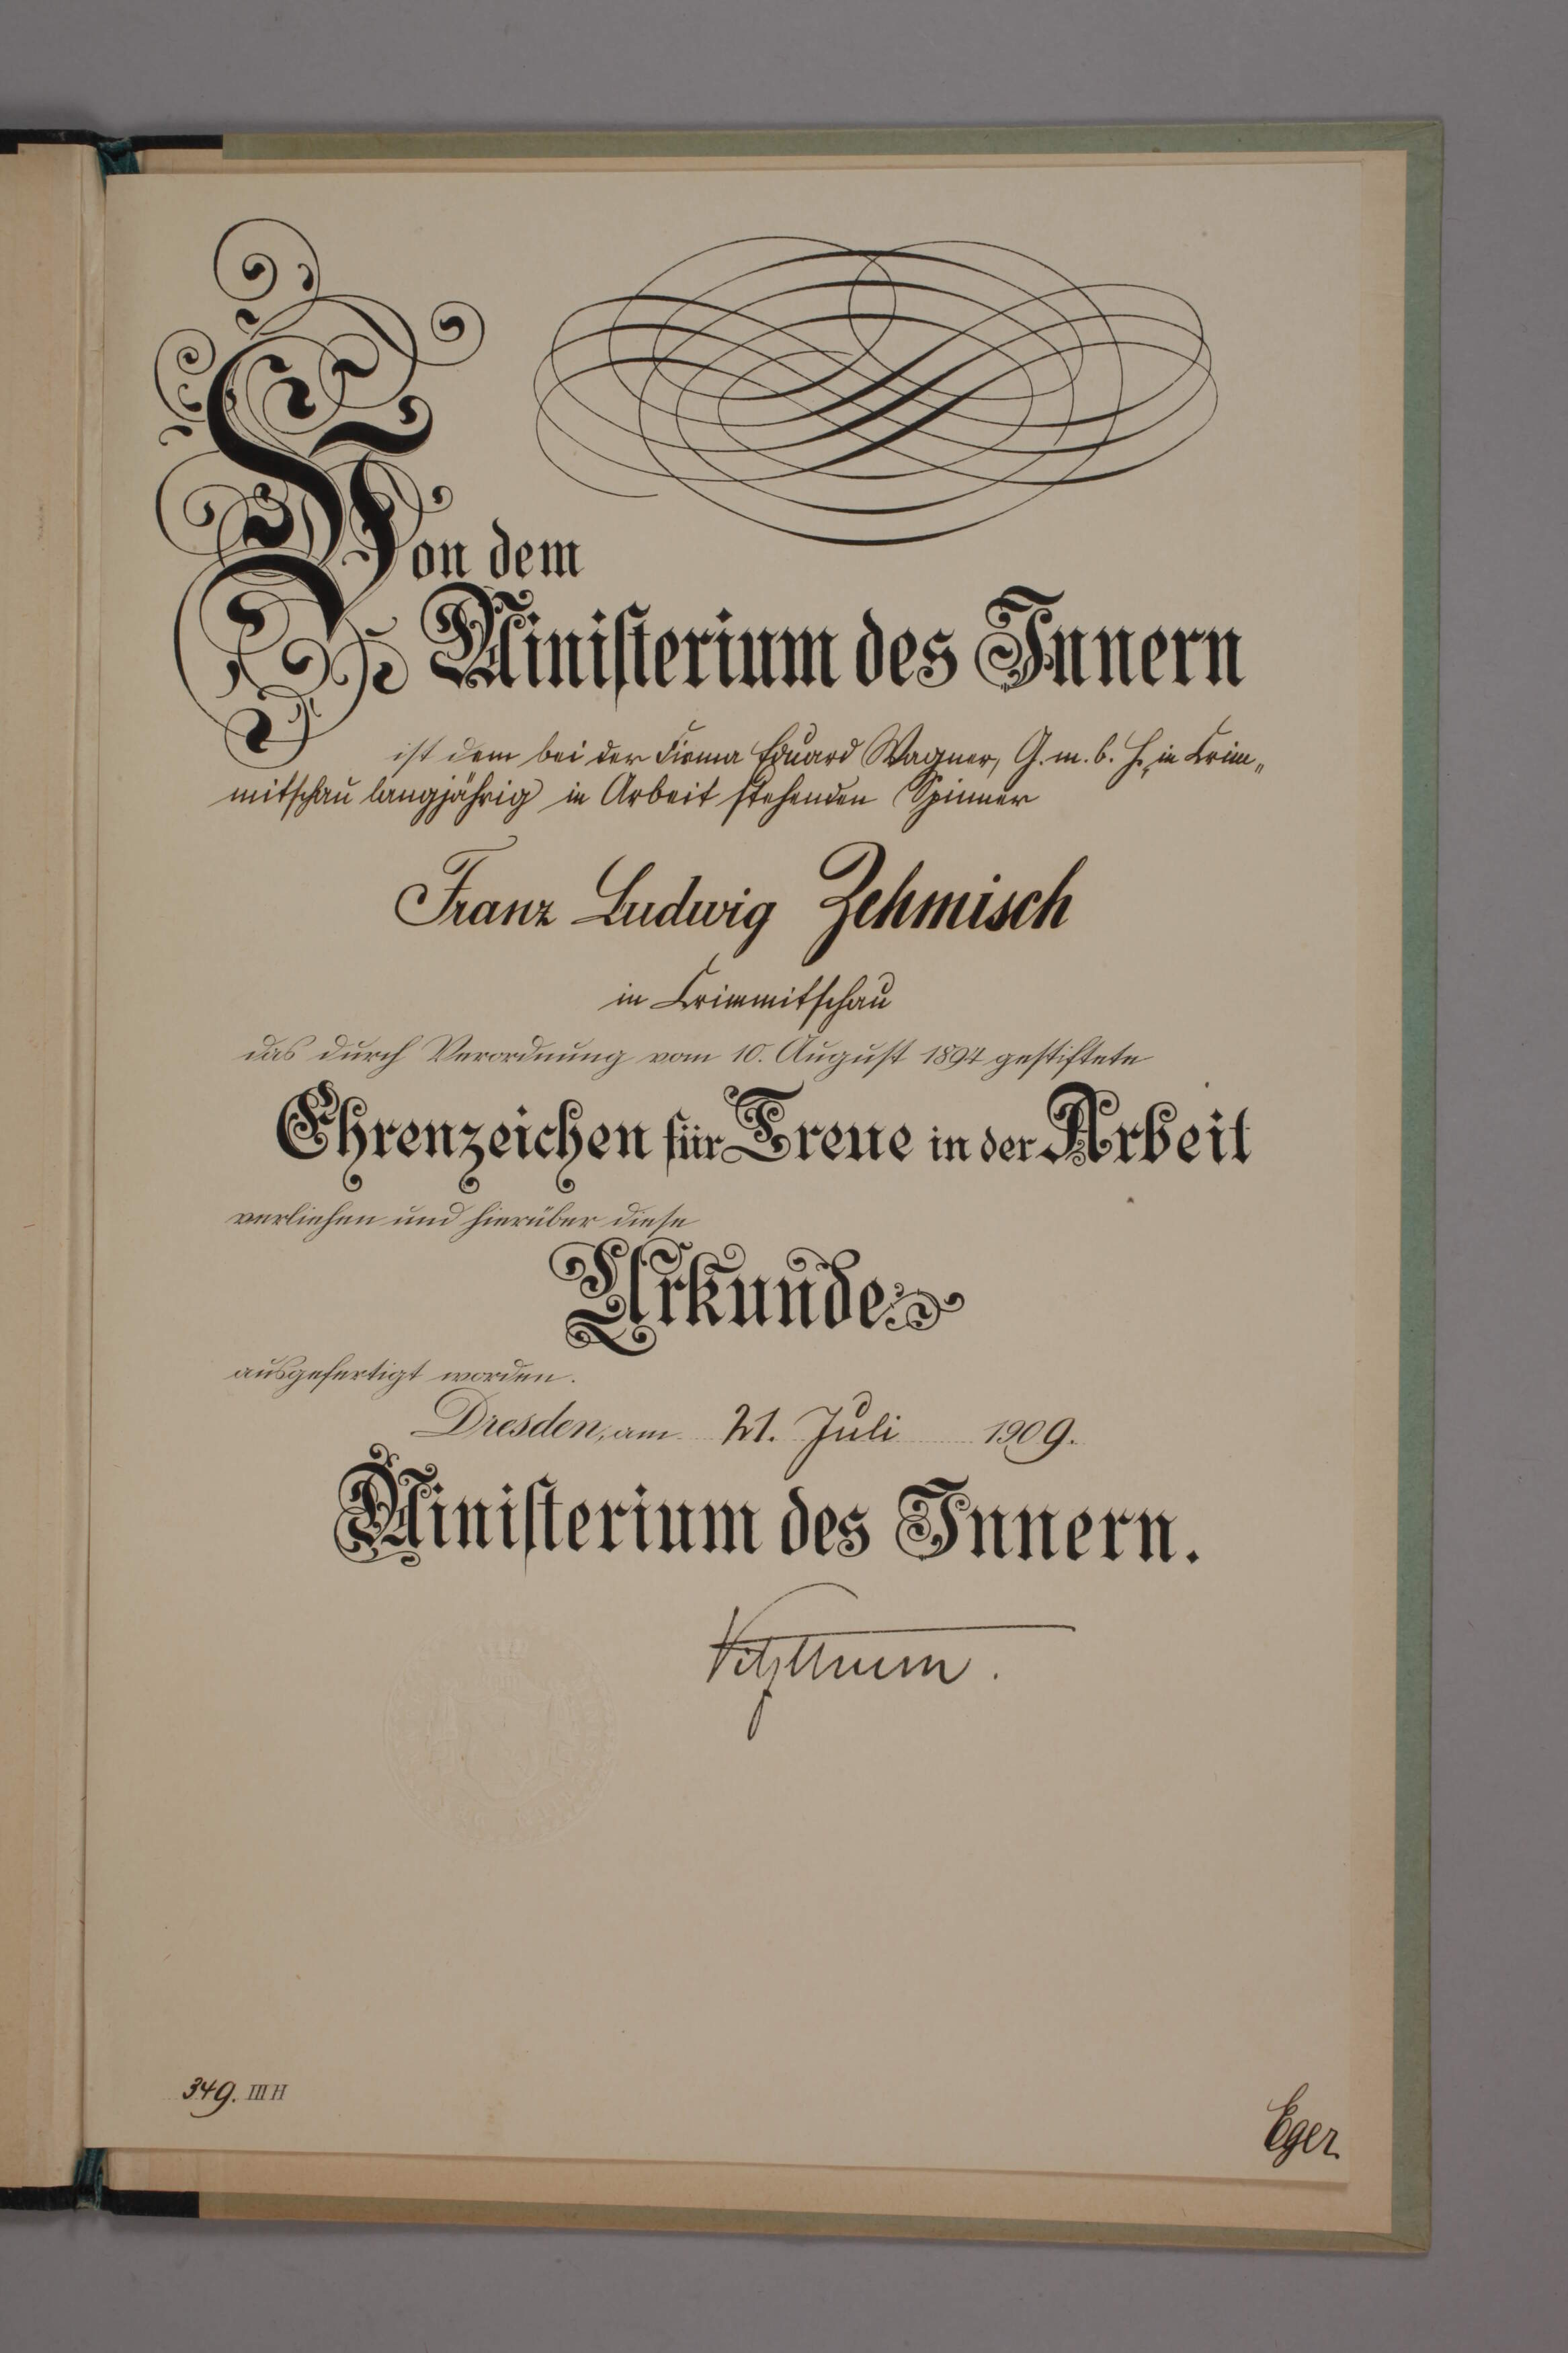 Von dem
Ministerium des Innern
ist dem bei der Firma Eduard Wagner, G. m. b. H., in Crim„
mitschau langjährig in Arbeit stehenden Spinner
Franz Ludwig Zehmisch
in Crimmitschau
das durch Verordnung vom 10. August 1894 gestiftete
Ehrenzeichen für Treue in der Arbeit
verliehen und hierüber diese
Urkunde
ausgefertigt worden.
Dresden, am 21. Juli 1909.
Ministerium des Innern.
Vitzthum.
349. III H
Eger